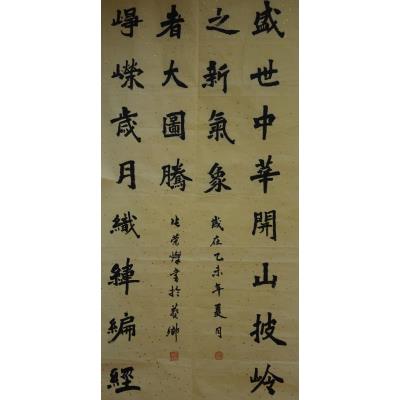 盛世中華開山披岭
之新氣象
者大圖騰
崢嶸歲月織緯編經
歲在乙未年夏月
张榮燦書於藝鄉